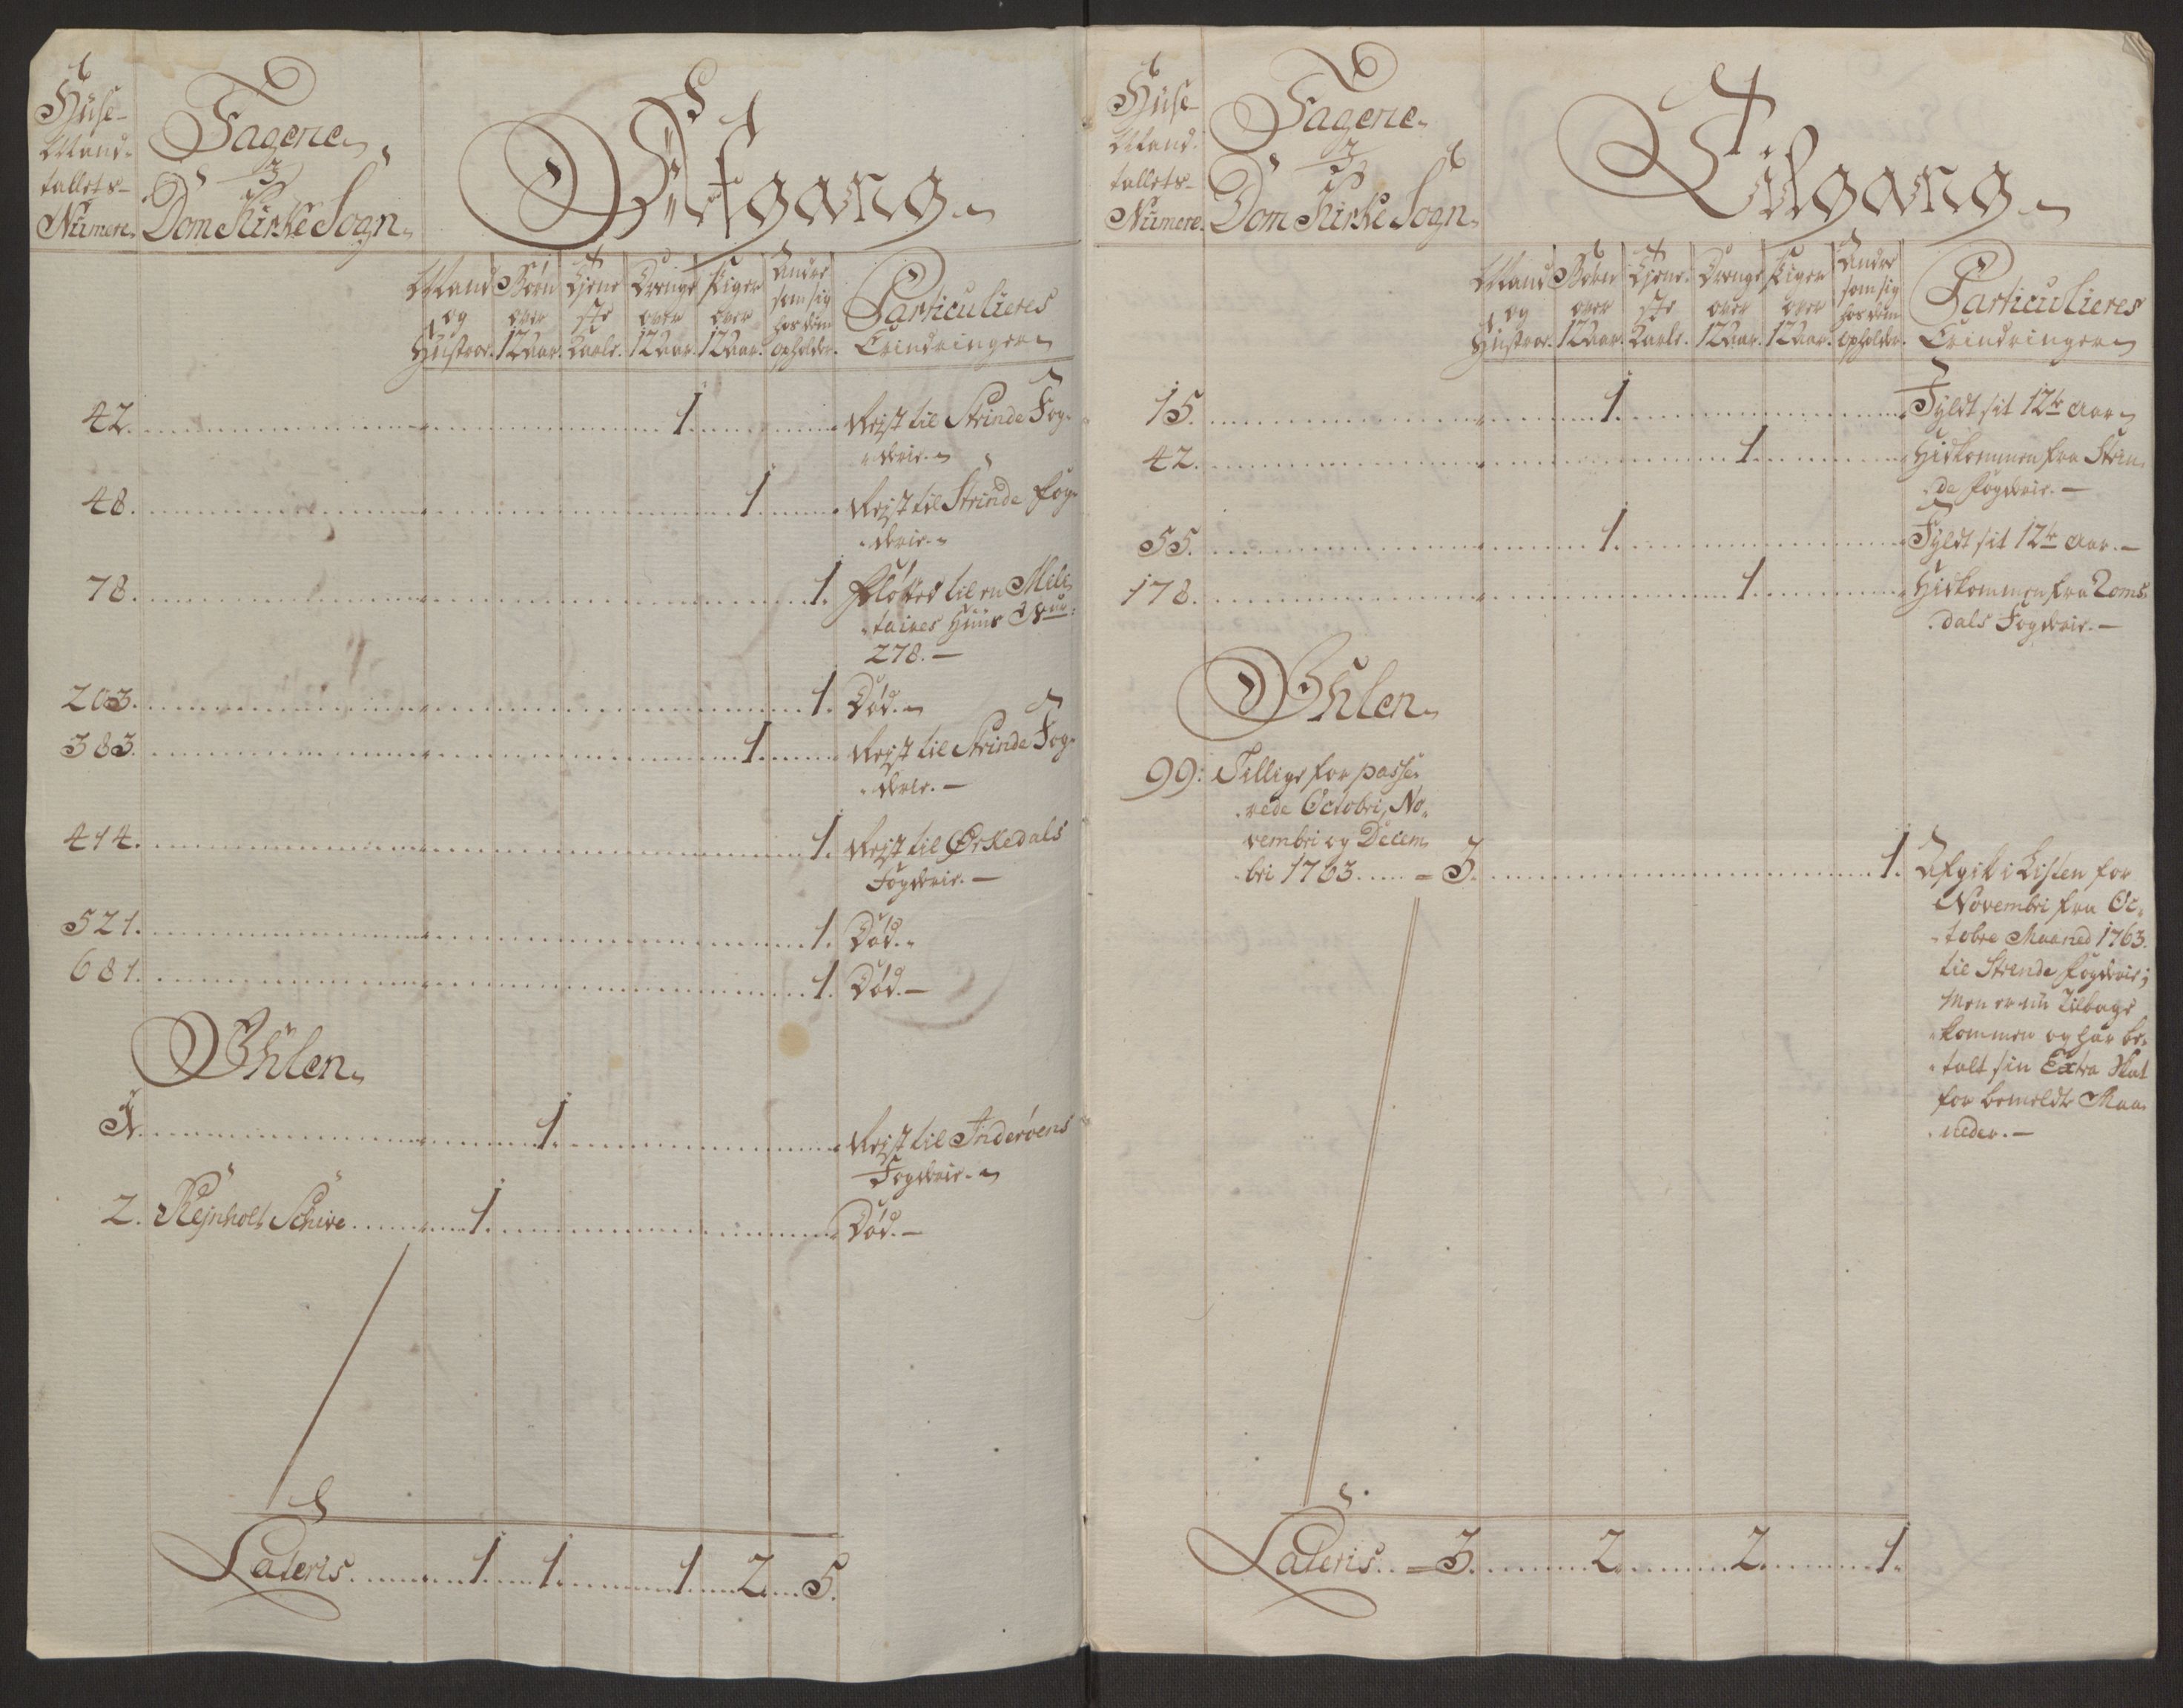 Huse-
Mand-
tallets-
Numere.
Tagene
3
Dom Kirke Sogn.
Afgang
Mand og Hustroe.
Børn over 12 Aar.
Tjeneste Karle.
Drenge over 12 Aar.
Piger over 12 Aar.
Andre som sig hos dem opholder.
Particulieres
Erindringer
42. 1. Rejst til Strinde Fog-
derie.
48. 1. Rejst til Strinde Fog-
derie.
78. 1. Fløttet til en Mili-
taires Huus
278.
203. 1. Død.
383. 1. Rejst til Strinde Fog-
derie.
414. 1. Rejst til Ørkedals
Fogderie.
521. 1. Død.
681. 1. Død.
Ihlen.
1. 1. Rejst til Inderøens
Fogderie.
2. Rejnholt Schive 1. Død.
Lateris 1. 1. 1. 2. 5.
Huse-
Mand-
tallets-
Numere.
Tagene
3
Dom Kirke Sogn.
Tilgang
Mand og Hustroe.
Børn over 12 Aar.
Tjeneste Karle.
Drenge over 12 Aar.
Piger over 12 Aar.
Andre som sig hos dem opholder.
Particulieres
Erindringer
15. 1. Fyldt sit 12te Aar
42. 1. Hidkommen fra Strin-
de Fogderie.
55. 1. Fyldt sit 12te Aar.
178. 1. Hidkommen fra Roms-
dals Fogderie.
Ihlen.
99: Tillige for passe-
rede Octobri, No-
vembri og Decem-
bri 1763. = 3. 1. Afgik i Listen for
Novembri fra Oc-
tobre Maaned 1763.
til Strinde Fogderie;
Men er nu Tilbage
kommen og har be-
talt sin Extra Skat
for bemeldte Maa-
neder.
Lateris = 3. 2. 2. 1.